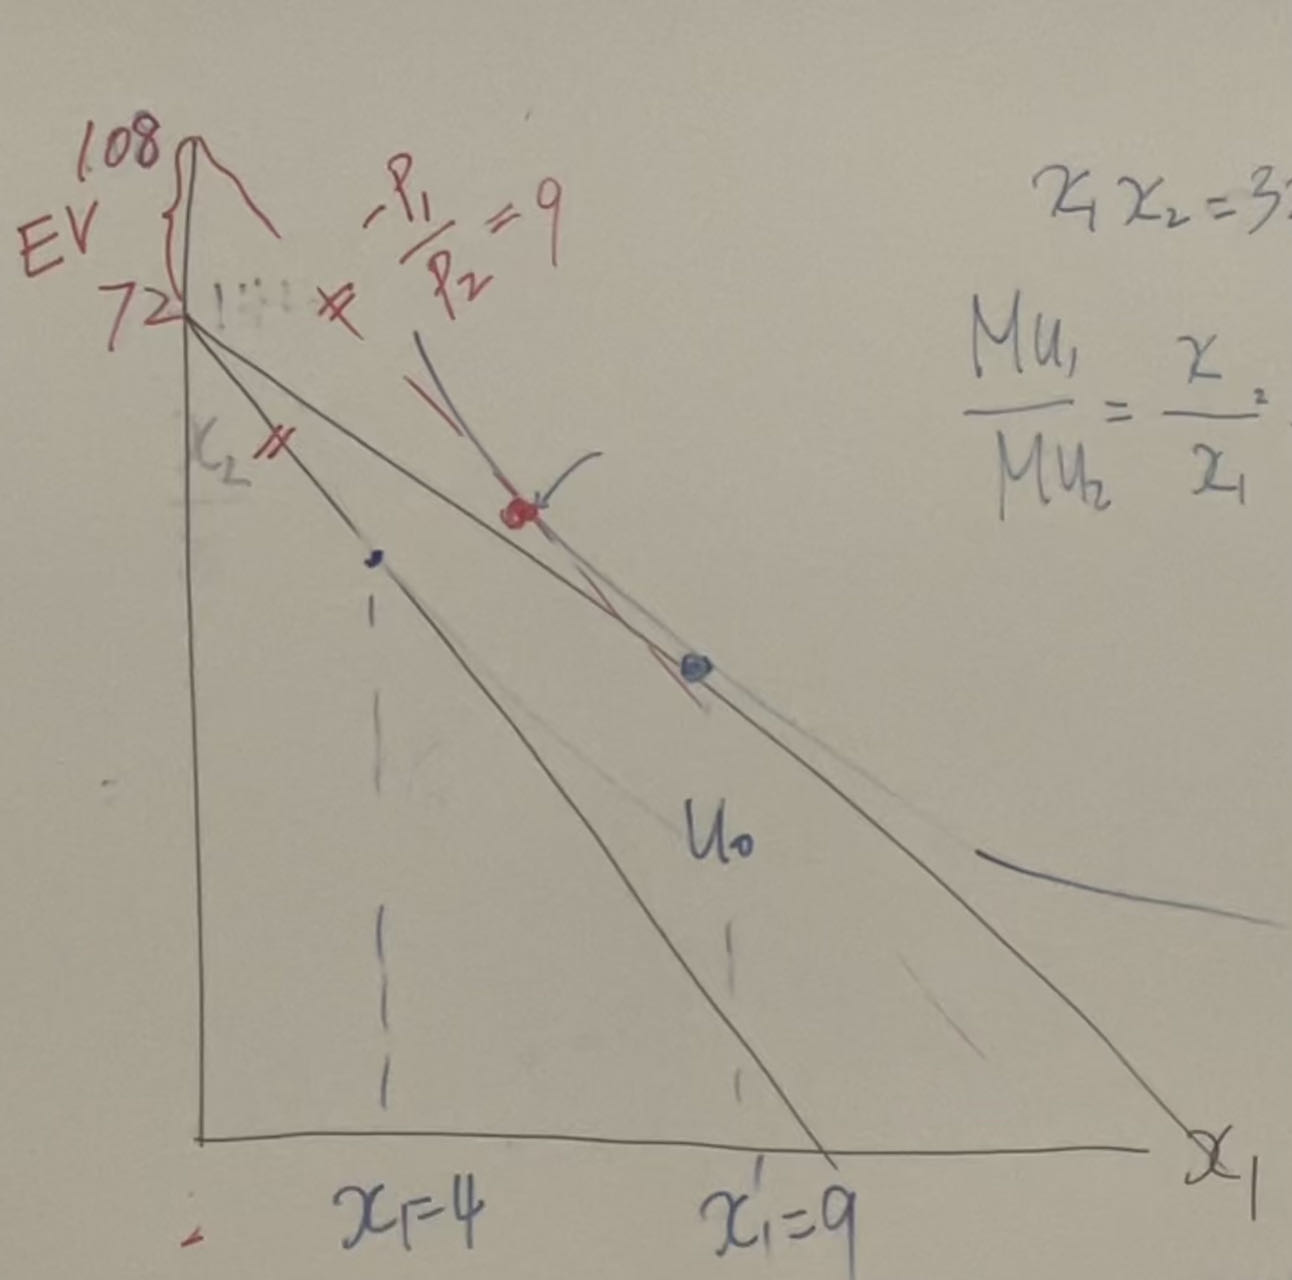 108
EV
72
-P₁/P₂ = 9
x₁x₂ = 3
MU₁/MU₂ = x₂/x₁
x₂
U₀
x₁
x₁=4
x₁'=9